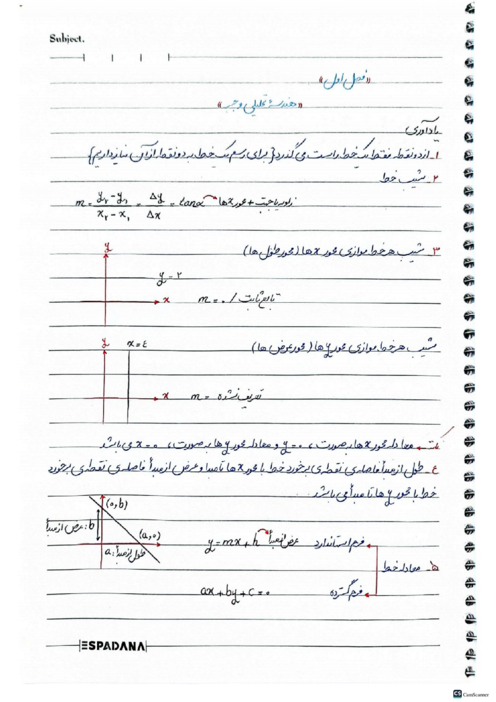 Subject.
«فصل اول»
«هندسهٔ تحلیلی و جبر»
یادآوری
۱ـ از دو نقطه فقط یک خط راست می گذرد { برای رسم یک خط، به دو نقطه از آن نیاز داریم }
۲ـ شیب خط
m = y₂ - y₁ / x₂ - x₁ = Δy / Δx = tanα زاویه با جهت + محور xها
۳ـ شیب هر خط موازی محور xها (محور طول ها)
y
y = ۲
x
m = ۰ / تابع ثابت
شیب هر خط موازی محور yها (محور عرض ها)
y x = ٤
x
m = تعریف نشده
نکته معادله محور xها بصورت، y = ۰ و معادله محور yها بصورت، x = ۰ می باشد
٤ـ طول از مبدأ فاصله ی نقطه ی برخورد خط با محور xها تا مبدا و عرض از مبدأ فاصله ی نقطه ی برخورد
خط با محور yها تا مبدأ می باشد
(۰,b)
b: عرض از مبدأ
(a,۰)
a: طول از مبدأ
۵ـ معادله خط
فرم استاندارد y = mx + h عرض از مبدأ
فرم گسترده ax + by + c = ۰
ESPADANA
CS CamScanner